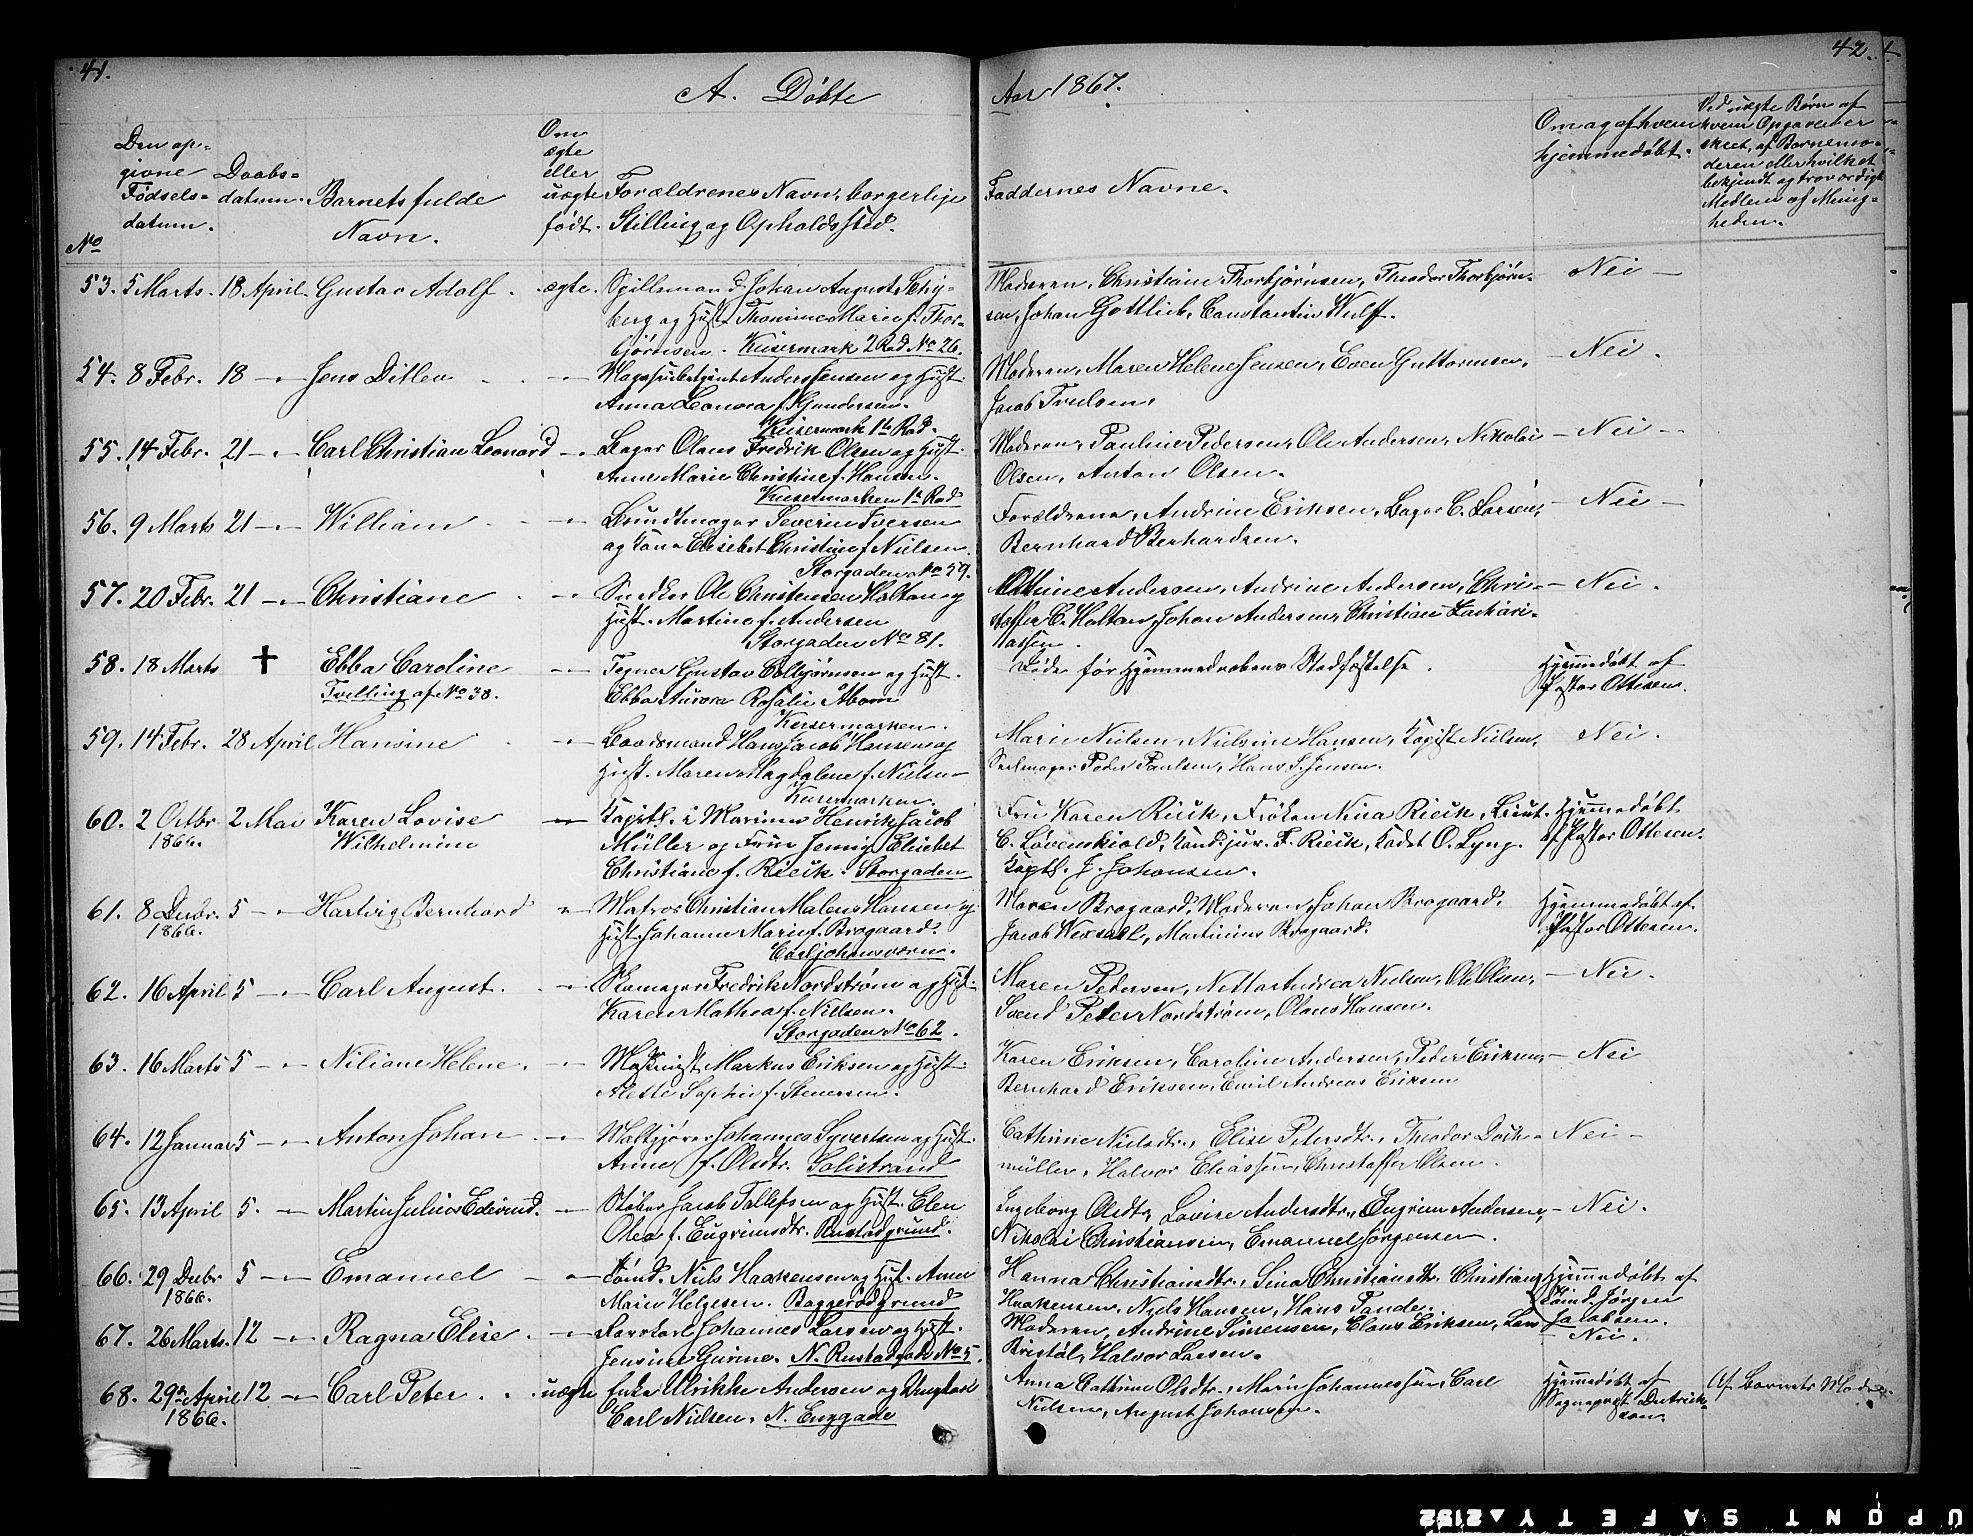 41.
A. Döbte
Aar 1867.
42.
No
Den op-
givne
Fødsels-
datum.
Daabs-
datum.
Barnets fulde
Navn.
Om
ægte
eller
uægte
født.
Forældrenes Navn, borgerlige
Stilling og Opholdssted.
Faddernes Navne.
Om og af hvem
hjemmedøbt.
Ved uægte Børn af
hvem Opgaven er
skeet, af Barnemo-
deren eller hvilket
bekjendt og troværdigt
Medlem af Menig-
heden.
53. 5 Marts. 18 April. Gustav Adolf. ægte. Spillemand Johan August Schy-
berg og Hust. Thomine Marie f. Thor-
bjørnsen. Keisermark 2 Rad No 26.
Moderen, Christiane Thorbjørnsen, Theodor Thorbjørn-
sen, Johan Gottlieb, Constantin Wulff.
Nei
54. 8 Febr. 18 -"- Jens Ditlev -"- Anders Jensen og Hust.
Anna Leonora f. Gundersen.
Keisermark 1te Rad.
Moderen, Maren Helene Jensen, Even Guttormsen,
Jacob Truelsen.
Nei.
55. 14 Febr. 21 -"- Carl Christian Leonard -"- Bager Olaus Fredrik Olsen og Hust.
Anne Marie Christine f. Hansen.
Keisermarken 1te Rad
Moderen, Pauline Pedersen, Ole Andersen, Nikolai
Olsen, Anton Olsen.
Nei
56. 9 Marts 21 -"- William -"- Bundtmager Severin Iversen
og Kone Elisebet Christine f. Nielsen.
Storgaden No 59.
Forældrene, Andrine Eriksen, Bager C. Larsen,
Bernhard Berhardsen.
Nei
57. 20 Febr. 21 -"- Christiane -"- Snedker Ole Christensen Holtan og
Hust. Martine f. Andersen
Storgaden No 81.
Otthine Andersen, Andrine Andersen, Chri-
stoffer C. Holtan, Johan Andersen, Christian Zachari-
assen.
Nei.
58. 18 Marts † Ebba Caroline
Tvelling af No 38.
-"- Tegner Gustav Colbjørnsen og Hust.
Ebba Aurora Rosalie Mom
Keisermarken.
Døde før Hjemmedaabens Stadfæstelse.
Hjemmedøbt af
Pastor Ottesen.
59. 14 Febr. 28 April Hansine -"- Baadsmand Hans Jacob Hansen og
Hust. Maren Magdalene f. Nielsen
Keisermarken.
Marie Nielsen, Nielsine Hansen, Nielsen,
Seilmager Peder Paulsen, Hans J. Jensen.
Nei.
60. 2 Octbr
1866.
2 Mai Karen Lovise
Wilhelmine
-"- Kaptl. i Marinen Henrik Jacob
Müller og Frue Jenny Elisebet
Christiane f. Rieck. Storgaden
Fru Karen Rieck, Frøken Nina Rieck, Lieut.
C. Løvenskiold, Kand. jur. F. Rieck, Kadet O. Lyng.
Kaptl. J. Johansen.
Hjemmedøbt
af Pastor Ottesen.
61. 8 Decbr.
1866.
5 -"- Hartvig Bernhard -"- Matros Christian Malens Hansen og
Hust. Johanne Marie f. Brogaard.
Carljohansværn.
Maren Brogaard, Moderen, Johan Brogaard,
Jacob Wexsall, Martinius Brogaard.
Hjemmedøbt af
Pastor Ottesen.
62. 16 April 5 -"- Carl August. -"- Skomager Fredrik Nordstrøm og Hust.
Karen Mathea f. Nielsen.
Storgaden No 62.
Maren Pedersen, Netta Andrea Nielsen, Ole Olsen,
Svend Peter Nordstrøm, Olaus Hansen.
Nei.
63. 16 Marts 5 -"- Niliane Helene. -"- Maskinist Markus Eriksen og Hust.
Alette Sophie f. Stenersen.
Karen Eriksen, Caroline Andersen, Peder Eriksen,
Bernhard Eriksen, Emil Andreas Eriksen
Nei
64. 12 Januar 5 -"- Anton Johan -"- Maltgjører Johannes Syvertsen og Hust.
Anne f. Olsdtr. Solistrand
Cathrine Nielsdtr., Elise Petersdtr., Theodor Doch-
müller, Halvor Eliassen, Christoffer Olsen.
Nei
65. 13 April 5. -"- Martin Julius Edevind. -"- Støber Jacob Tollefsen og Hust. Elen
Olea f. Eugrimsdtr. Rustadgrund.
Ingeborg Olsdtr., Lovise Andersdtr., Eugrim Andersen,
Nikolai Christiansen, Emanuel Jørgensen.
Nei.
66. 29 Decbr
1866.
5 -"- Emanuel -"- Tømd. Niels Haakensen og Hust. Anne
Marie Helgesen. Baggerødgrund
Hanna Christiansdtr., Sina Christiansdtr. Christian
Haakensen, Niels Hansen, Hans Tande.
Hjemmedøbt af
Tømd. Jørgen
Jacobsen.
67. 26 Marts. 12 -"- Ragna Elise. -"- Johannes Larsen og Hust.
Jensine Gurine. N. Rustadgade No 5.
Moderen, Andrine Simensen, Claus Eriksen, Lars
Bristol, Halvor Larsen.
Nei.
68. 29de April
1866.
12 -"- Carl Peter. uægte Enke Ulrikke Andersen og Ungkarl
Carl Nielsen. N. Enggade
Anna Cathrine Olsdtr., Marie Johannessen, Carl
Nielsen, August Johansen.
Hjemmedøbt af
Sognepræst Dietrich-
son.
Af Barnets Moder.
UPONT SAFETY 2152